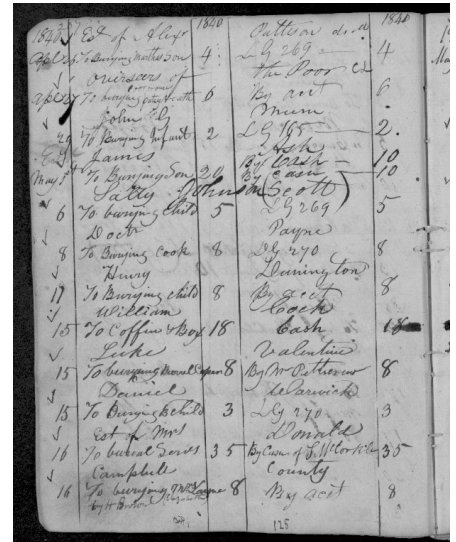 1840 Est of Alexr 1840 Pattison decd 1840
Apl 25 To Burying Mathis Son 4 LG 269 4
overseers of the Poor
Apl 27 To burying 6 By acct 6
John G Mum
29 To Burying Infant 2 LG 165 2
James Ash
May 5 To Burying Son 20 By Cash 10
By Cash 10
Sally Johnson (Scott)
6 To burying Child 5 LG 269 5
Doctr Payne
8 To Burying Cook 8 LG 270 8
Henry Dunington
11 To Burying child 8 By acct 8
William Cock
15 To Coffin & Box 18 Cash 18
Luke Valentine
15 To burying 8 By Mr Patterson 8
Daniel Warwick
15 To Burying B child 3 LG 270 3
Est of Mrs Donald
16 To burial Servs 35 By 35
Campbell County
16 To burying Mrs Layne 8 By acct 8
by H
125